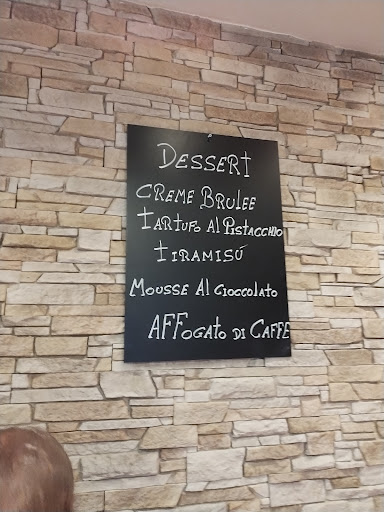 DESSERT
CREME BRULEE
TARTUFO Al PISTACCHIO
TIRAMISÚ
MOUSSE Al CIOCCOLATO
AFFOGATO DI CAFFE